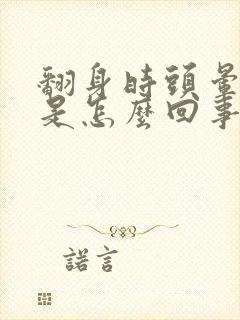 翻身時頭暈
是怎麼回事
諾言